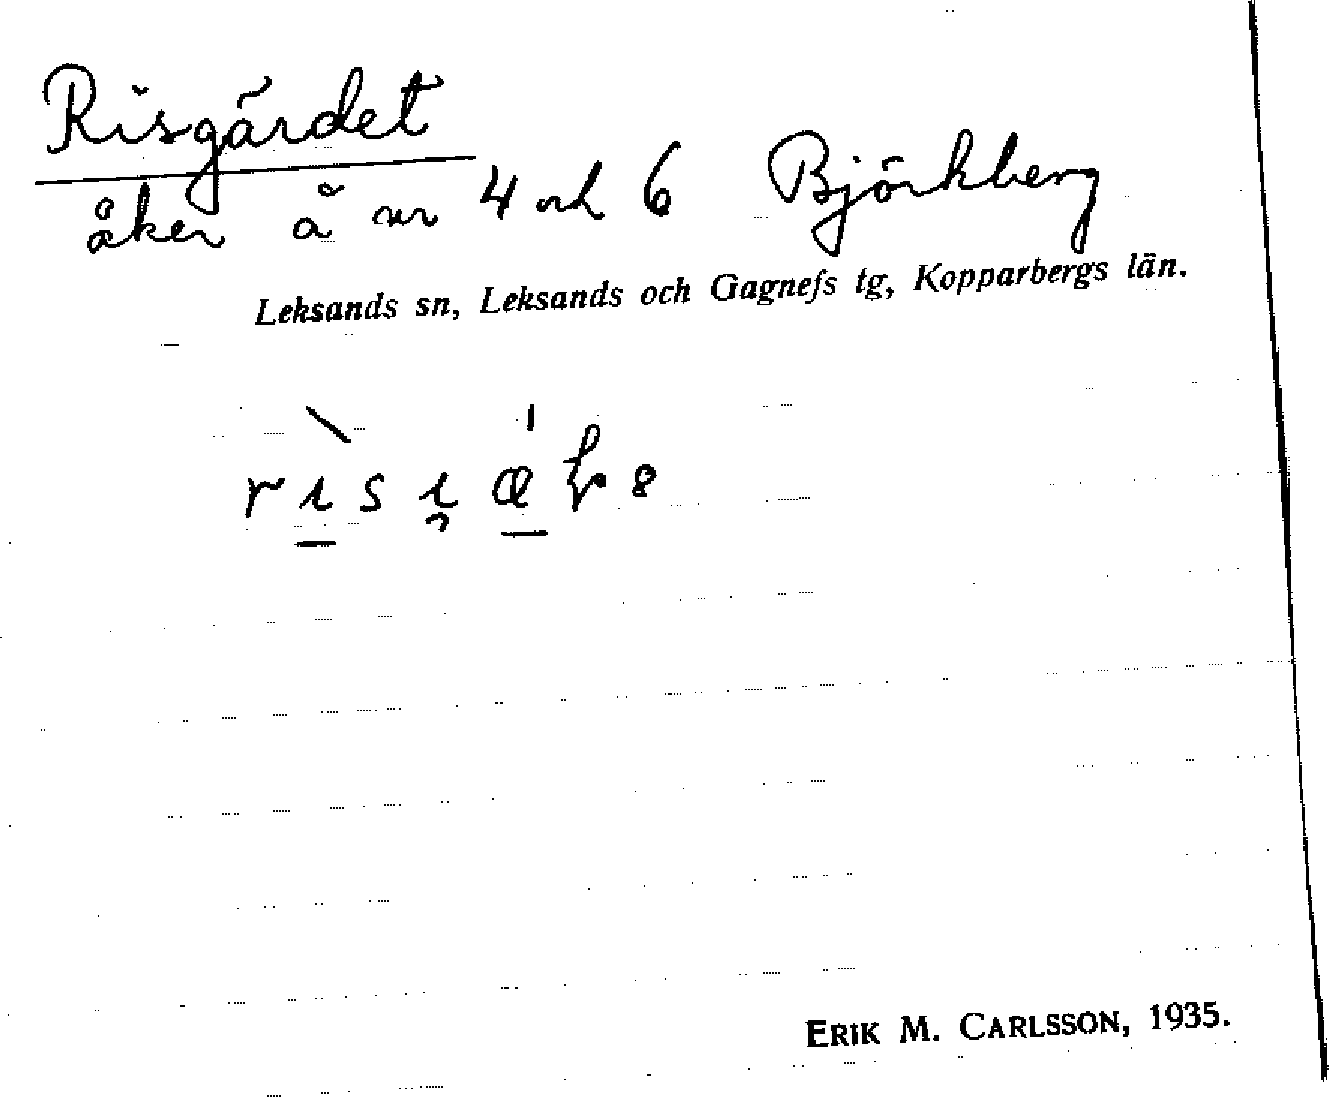 Risgärdet
åker å nr 4 och 6 Björkberg
Leksands sn, Leksands och Gagnefs tg, Kopparbergs län.
ERIK M. CARLSSON, 1935.